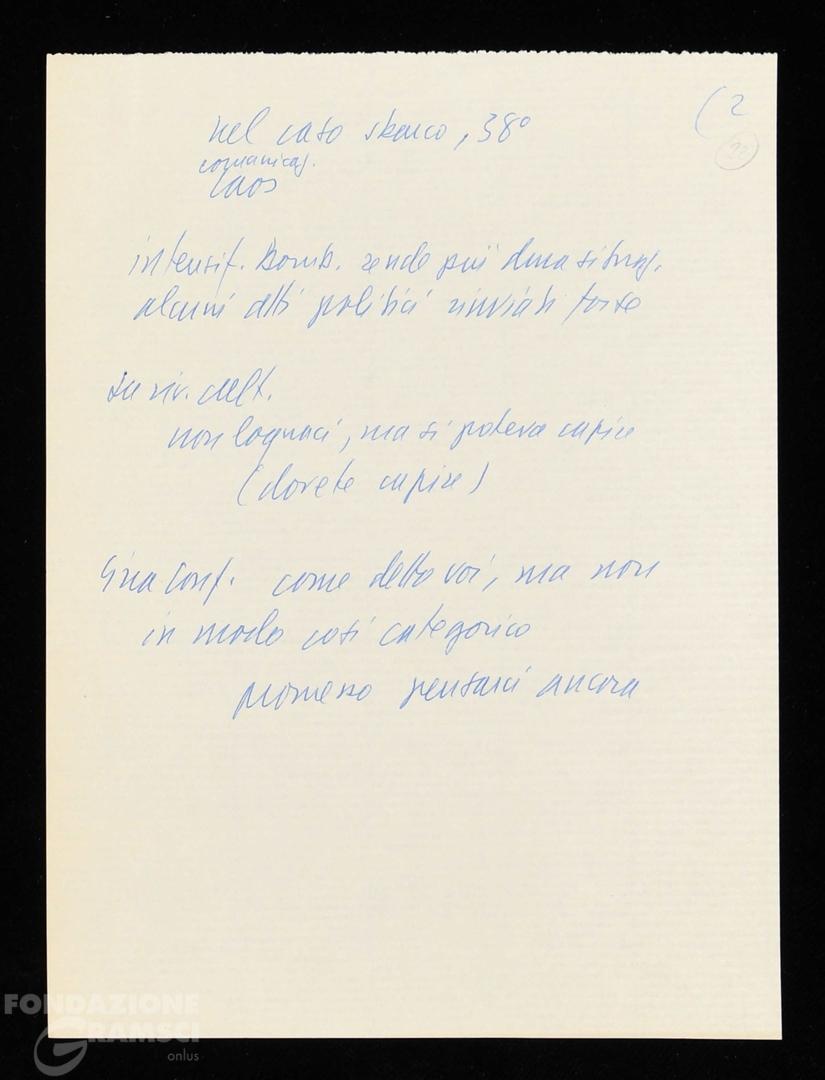 (2
22
nel caso sbarco, 38°
comunicaz.
Laos
intensif. bomb. rende più dura situaz.
alcuni atti politici rinviati forse
Su riv. cult.
non loquaci, ma si poteva capire
(dovete capire)
Sina Conf. come detto voi, ma non
in modo così categorico
promesso pensarci ancora
FONDAZIONE
GRAMSCI
onlus